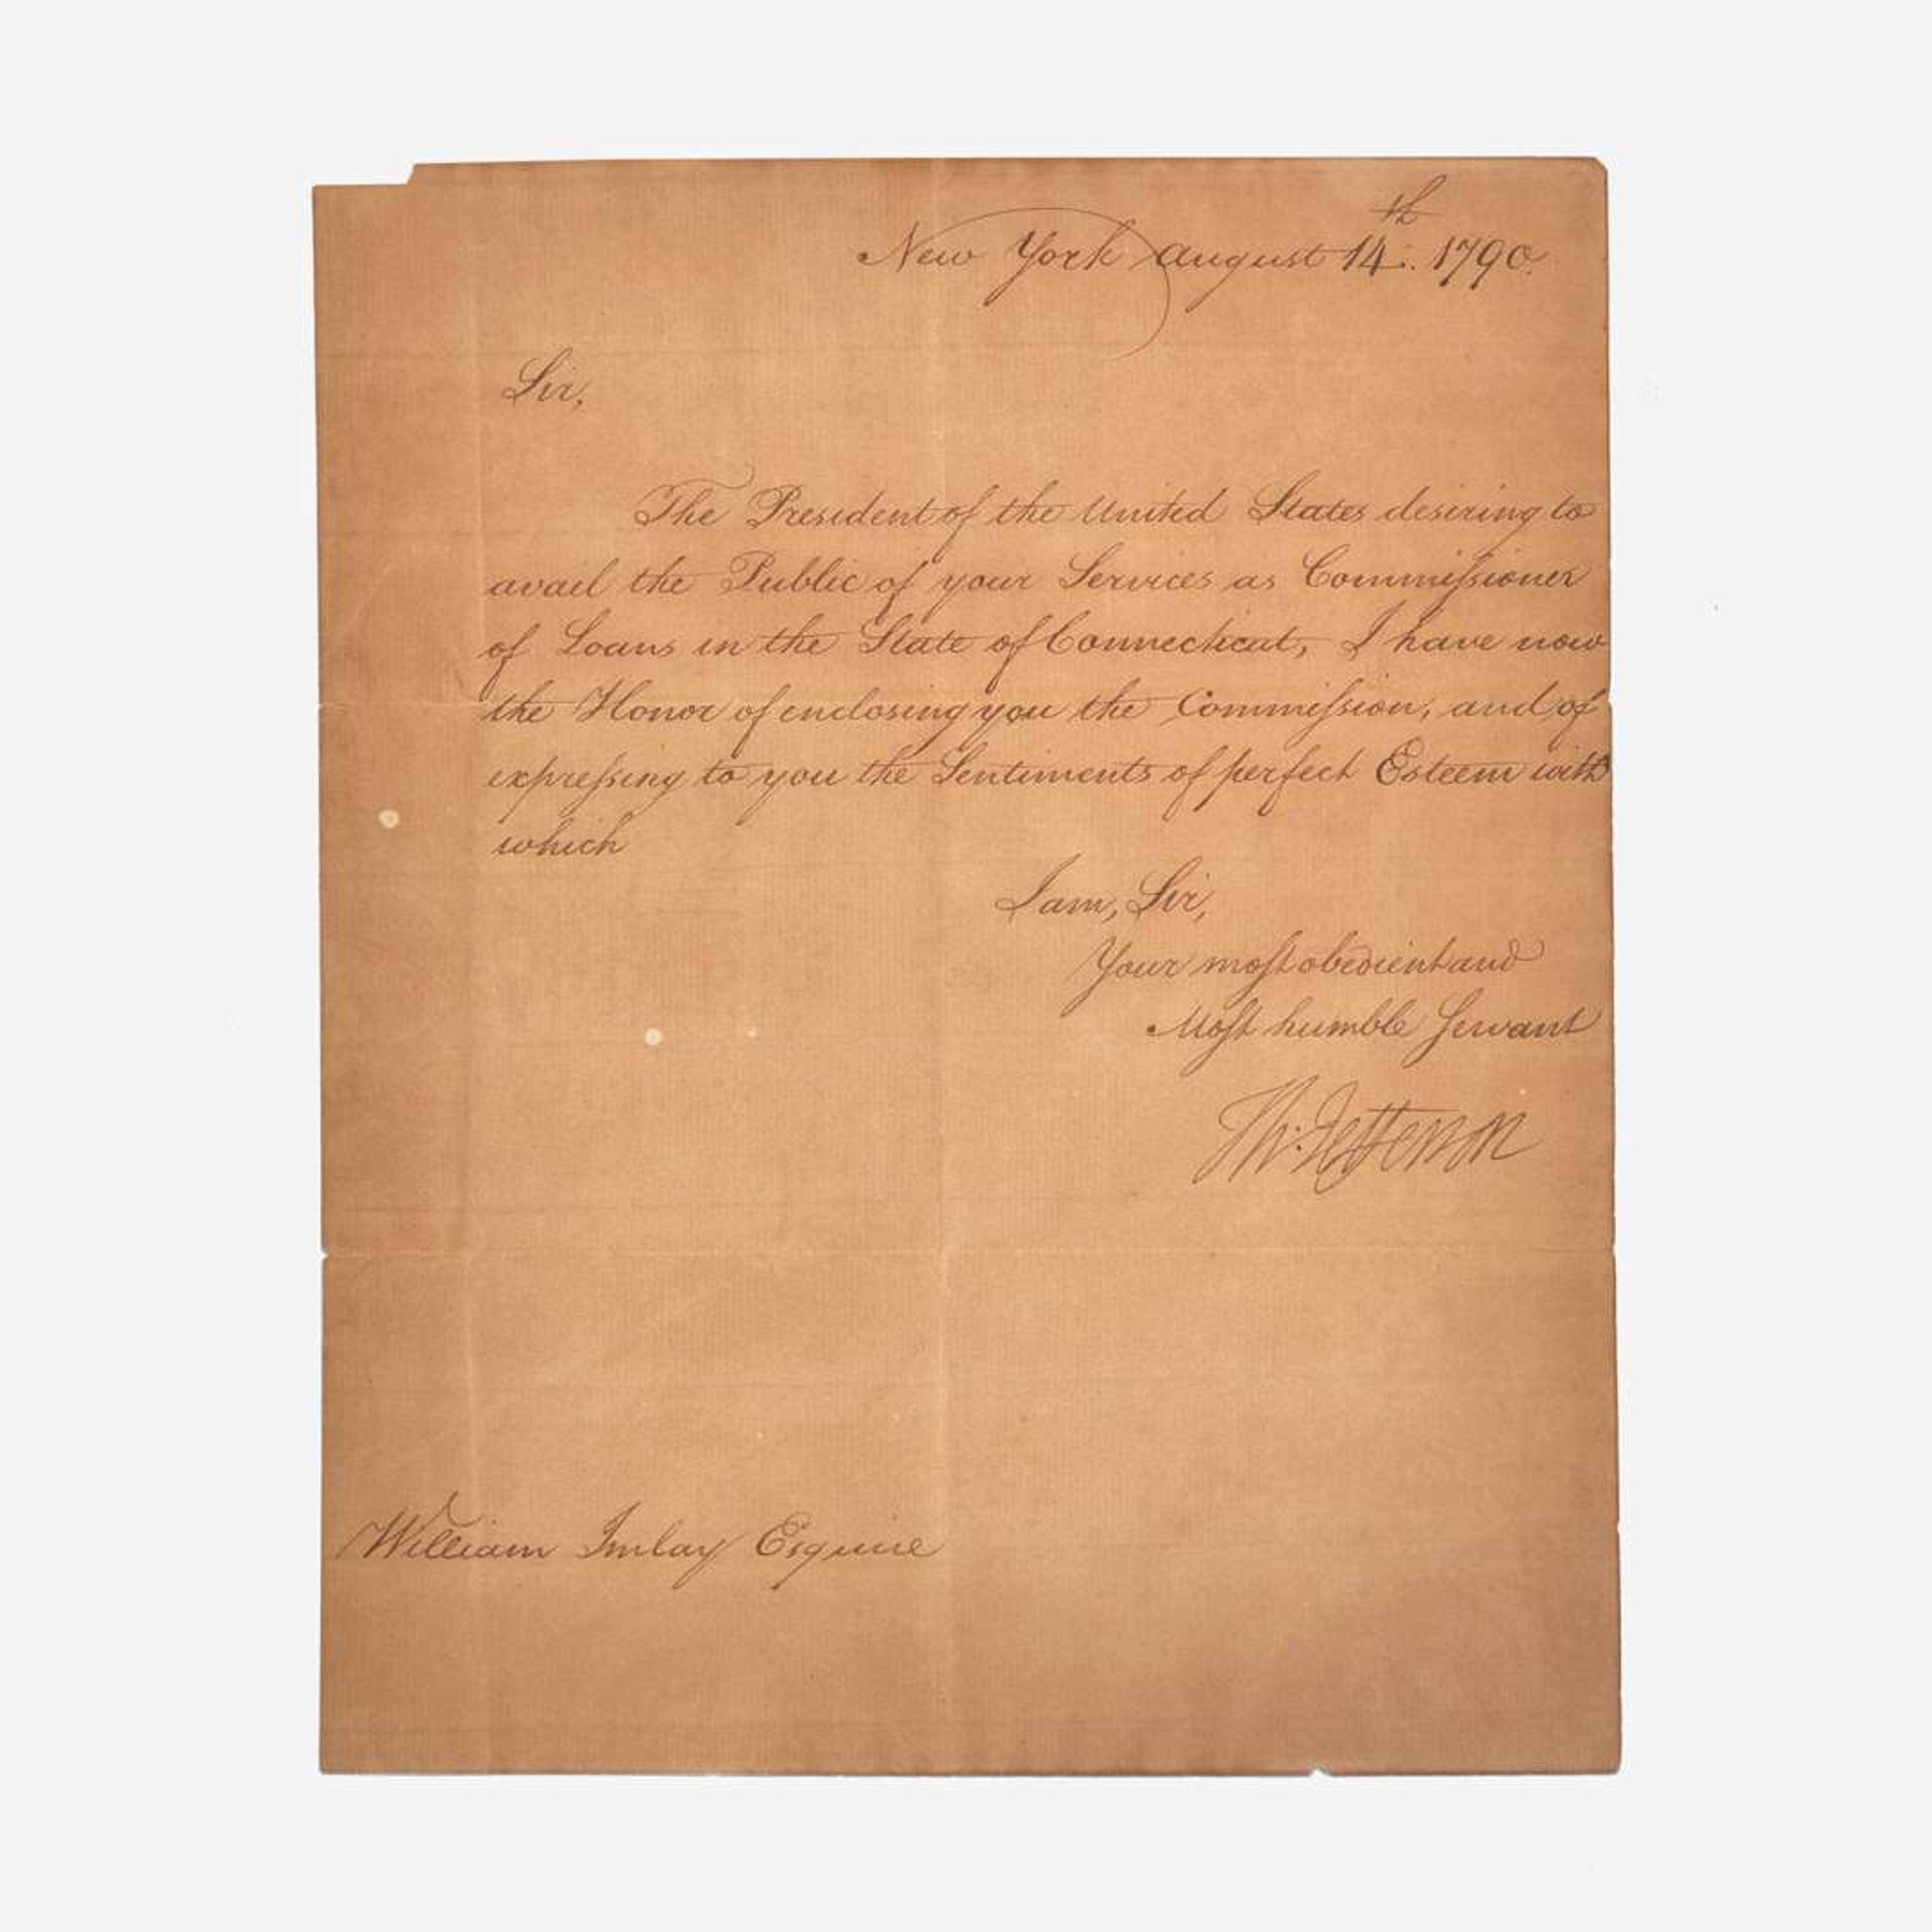 New York August 14th. 1790.
Sir,
The President of the United States desiring to
avail the Public of your Services as Commiſsioner
of Loans in the State of Connecticut, I have now
the Honor of enclosing you the Commiſsion, and of
expreſsing to you the Sentiments of perfect Esteem with
which
I am, Sir,
Your moſt obedient and
Moſt humble Servant
Th: Jefferson
William Imlay Esquire